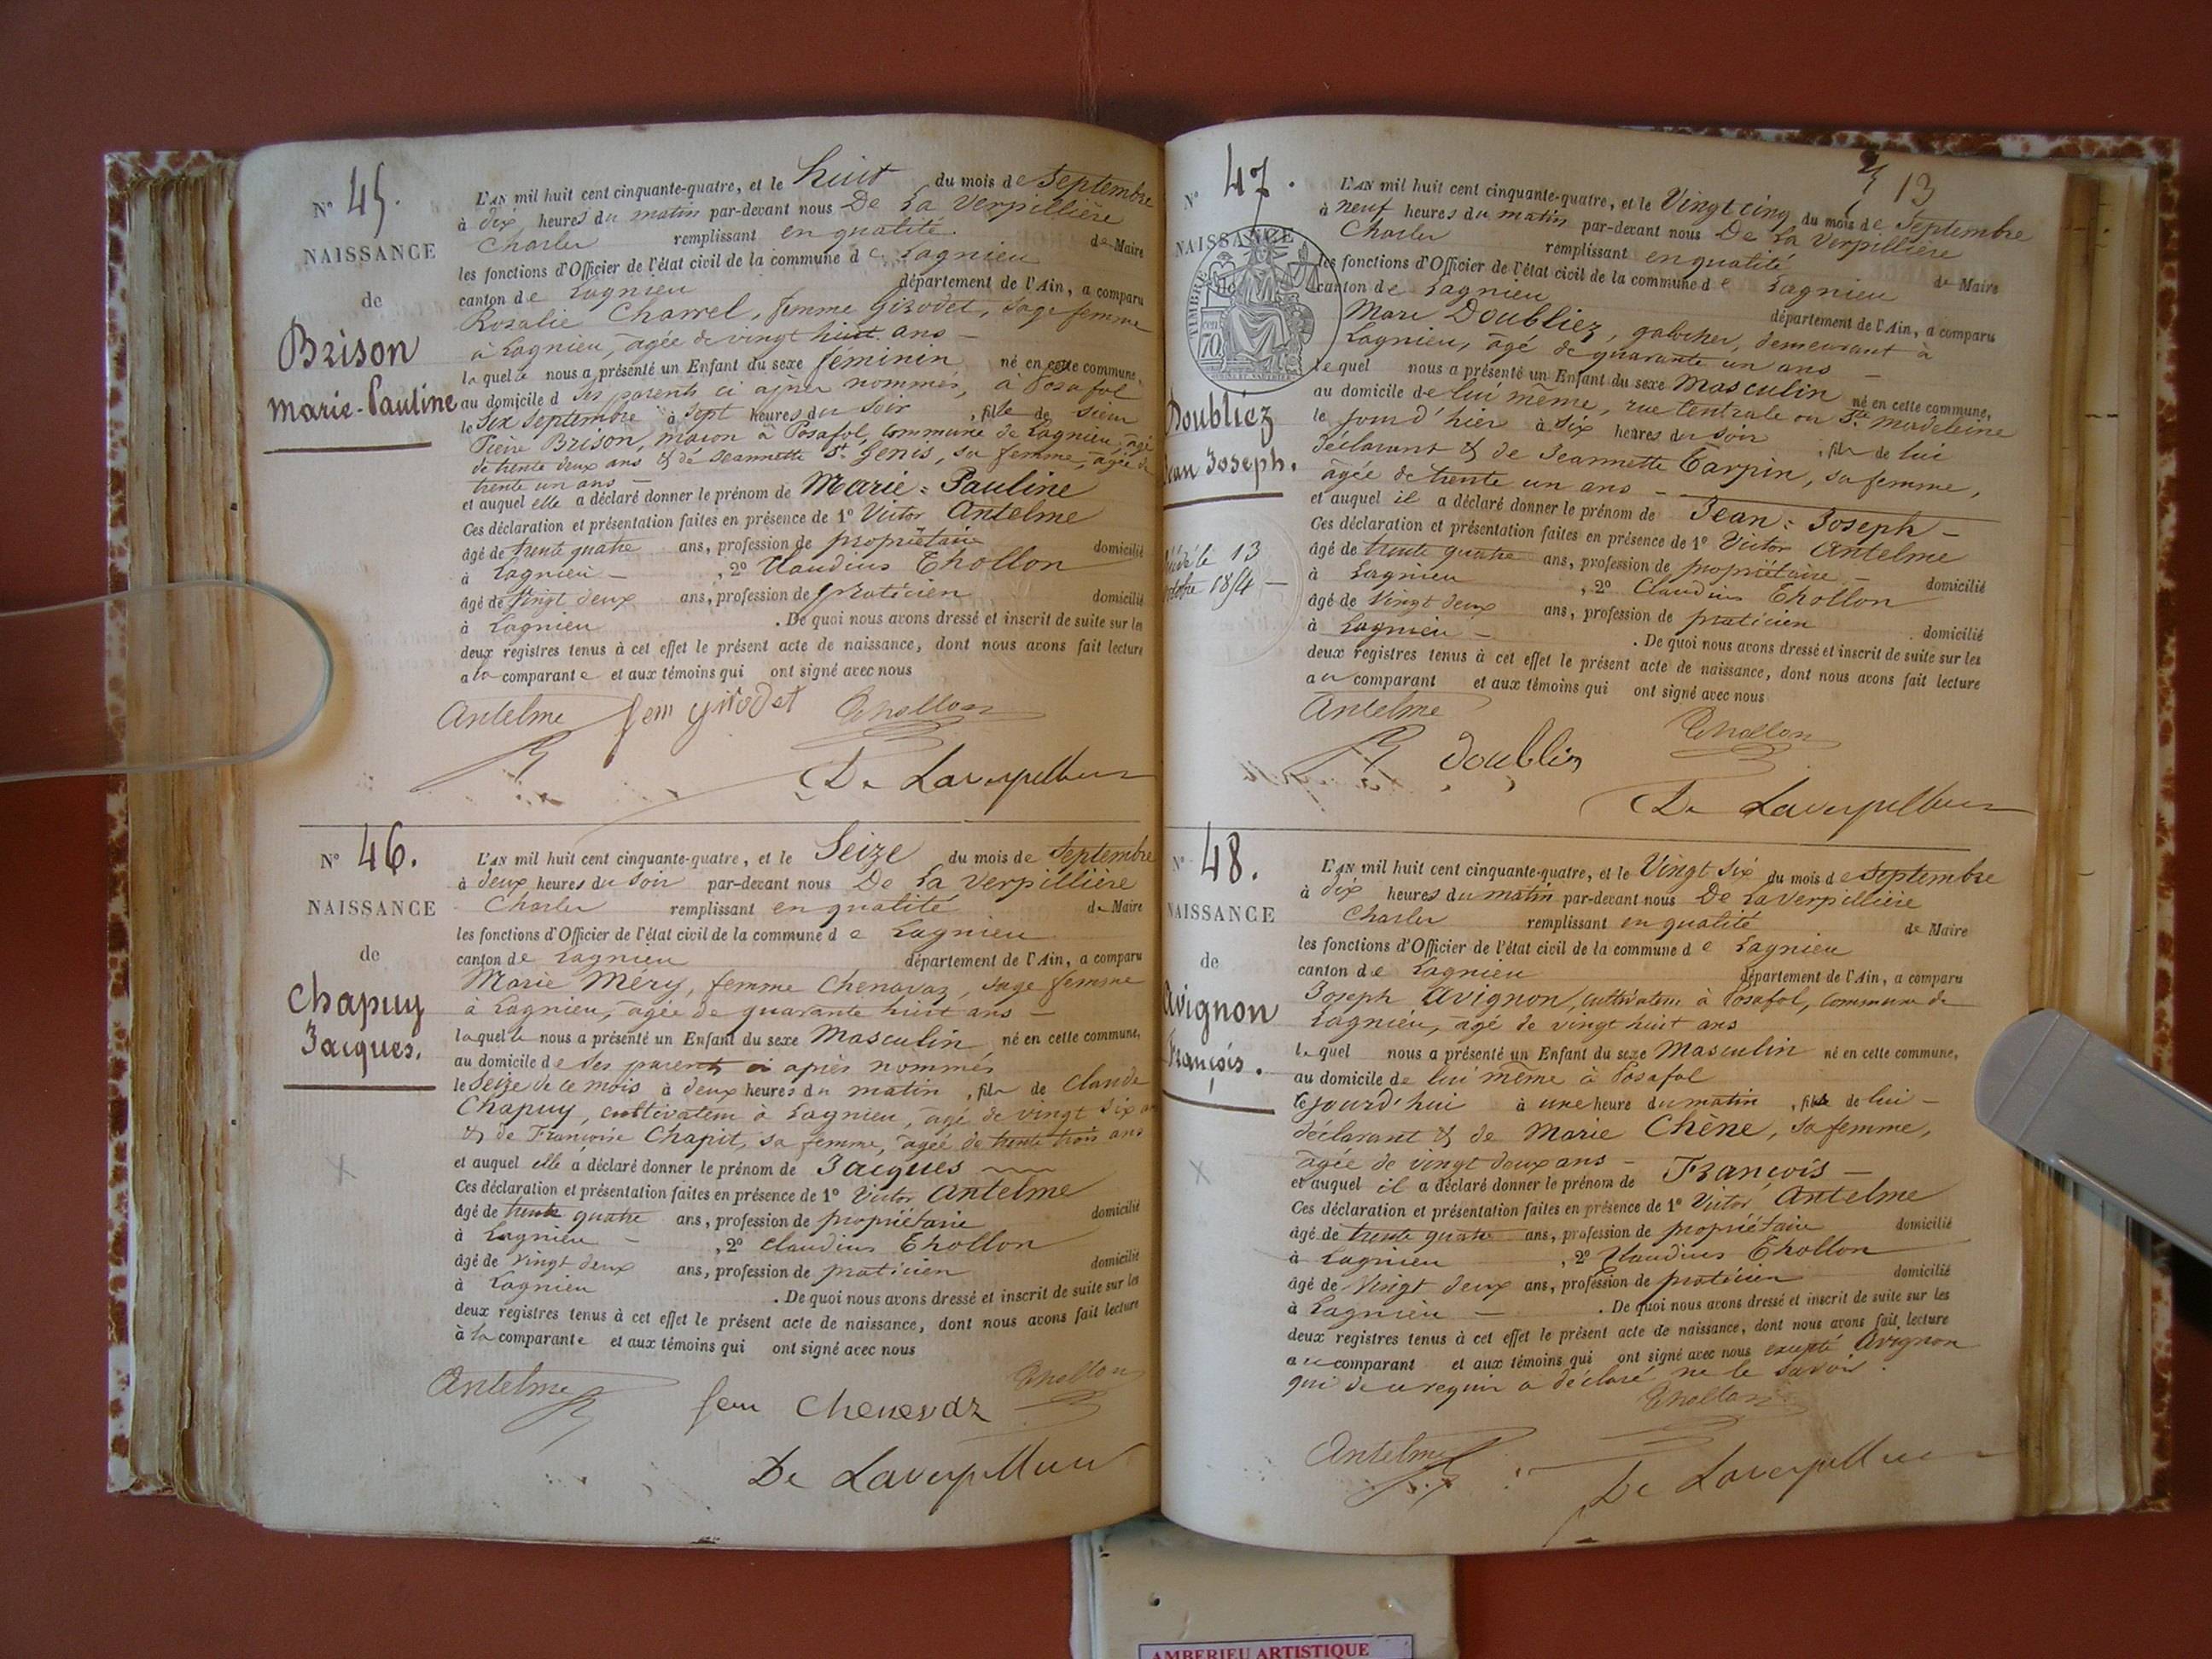 N° 45.
NAISSANCE
de
Brison
Marie-Pauline
L'AN mil huit cent cinquante-quatre, et le huit du mois de Septembre
à dix heures du matin par-devant nous De La Verpillière
Charles remplissant en qualité de Maire
les fonctions d'Officier de l'état civil de la commune de Lagnieu
canton de Lagnieu département de l'Ain, a comparu
Rosalie Charrel, femme Girodet, sage femme
à Lagnieu, agée de vingt huit ans —
laquelle nous a présenté un Enfant du sexe féminin né en cette commune,
au domicile d ses parents ci après nommés, à Posafol
le Six Septembre à Sept heures du soir, fille de sieur
Pierre Brison, maçon à Posafol, commune de Lagnieu, agé
de trente deux ans & de Jeannette St. Genis, sa femme, agée de
trente un ans —
et auquel elle a déclaré donner le prénom de Marie = Pauline
Ces déclaration et présentation faites en présence de 1° Victor Antelme
âgé de trente quatre ans, profession de propriétaire domicilié
à Lagnieu —, 2° Claudius Thollon
âgé de Vingt deux ans, profession de praticien domicilié
à Lagnieu. De quoi nous avons dressé et inscrit de suite sur les
deux registres tenus à cet effet le présent acte de naissance, dont nous avons fait lecture
a la comparante et aux témoins qui ont signé avec nous
Antelme fem girodet Thollon
De Laverpillière
N° 46.
NAISSANCE
de
Chapuy
Jacques.
L'AN mil huit cent cinquante-quatre, et le Seize du mois de Septembre
à deux heures du soir par-devant nous De La Verpillière
Charles remplissant en qualité de Maire
les fonctions d'Officier de l'état civil de la commune de Lagnieu
canton de Lagnieu département de l'Ain, a comparu
Marie Méry, femme Chenavaz, sage femme
à Lagnieu, agée de quarante huit ans —
laquelle nous a présenté un Enfant du sexe Masculin né en cette commune,
au domicile de ses parents ci après nommés
le Seize de ce mois à deux heures du matin, fils de Claude
Chapuy, cultivateur à Lagnieu, agé de vingt six
& de Françoise Chapit, sa femme, agée de trente trois ans
et auquel elle a déclaré donner le prénom de Jacques
Ces déclaration et présentation faites en présence de 1° Victor Antelme
âgé de trente quatre ans, profession de propriétaire domicilié
à Lagnieu —, 2° Claudius Thollon
âgé de Vingt deux ans, profession de praticien domicilié
à Lagnieu. De quoi nous avons dressé et inscrit de suite sur les
deux registres tenus à cet effet le présent acte de naissance, dont nous avons fait lecture
à la comparante et aux témoins qui ont signé avec nous
Antelme fem Chenevaz Thollon
De Laverpillière
13
N° 47.
NAISSANCE
TIMBRE
70
Doubliez
Jean Joseph.
13
octobre 1854 —
L'AN mil huit cent cinquante-quatre, et le Vingt cinq du mois de Septembre
à neuf heures du matin par-devant nous De La Verpillière
Charles remplissant en qualité de Maire
les fonctions d'Officier de l'état civil de la commune de Lagnieu
canton de Lagnieu département de l'Ain, a comparu
Marc Doubliez, galocher, demeurant à
Lagnieu, agé de quarante un ans —
lequel nous a présenté un Enfant du sexe Masculin né en cette commune,
au domicile de lui même, rue Centrale ou Ste. Madeleine
le jour d'hier à Six heures du soir, fils de lui
déclarant & de Jeannette Carpin, sa femme,
agée de trente un ans —
et auquel il a déclaré donner le prénom de Jean = Joseph —
Ces déclaration et présentation faites en présence de 1° Victor Antelme
âgé de trente quatre ans, profession de propriétaire — domicilié
à Lagnieu, 2° Claudius Thollon
âgé de Vingt deux ans, profession de praticien domicilié
à Lagnieu —. De quoi nous avons dressé et inscrit de suite sur les
deux registres tenus à cet effet le présent acte de naissance, dont nous avons fait lecture
au comparant et aux témoins qui ont signé avec nous
Antelme Thollon
Doublier
De Laverpillière
N° 48.
NAISSANCE
de
Avignon
François.
L'AN mil huit cent cinquante-quatre, et le Vingt Six du mois de Septembre
à dix heures du matin par-devant nous De La Verpillière
Charles remplissant en qualité de Maire
les fonctions d'Officier de l'état civil de la commune de Lagnieu
canton de Lagnieu département de l'Ain, a comparu
Joseph Avignon, cultivateur à Posafol, commune de
Lagnieu, agé de vingt huit ans
lequel nous a présenté un Enfant du sexe Masculin né en cette commune,
au domicile de lui même à Posafol
le jourd'hui à une heure du matin, fils de lui —
déclarant & de Marie Chêne, sa femme,
agée de vingt deux ans —
et auquel il a déclaré donner le prénom de François —
Ces déclaration et présentation faites en présence de 1° Victor Antelme
âgé de trente quatre ans, profession de propriétaire domicilié
à Lagnieu, 2° Claudius Thollon
âgé de Vingt deux ans, profession de praticien domicilié
à Lagnieu —. De quoi nous avons dressé et inscrit de suite sur les
deux registres tenus à cet effet le présent acte de naissance, dont nous avons fait lecture
au comparant et aux témoins qui ont signé avec nous excepté Avignon
qui de ce requis a déclaré ne le savoir.
Thollon
Antelme
De Laverpillière
AMBERIEU ARTISTIQUE